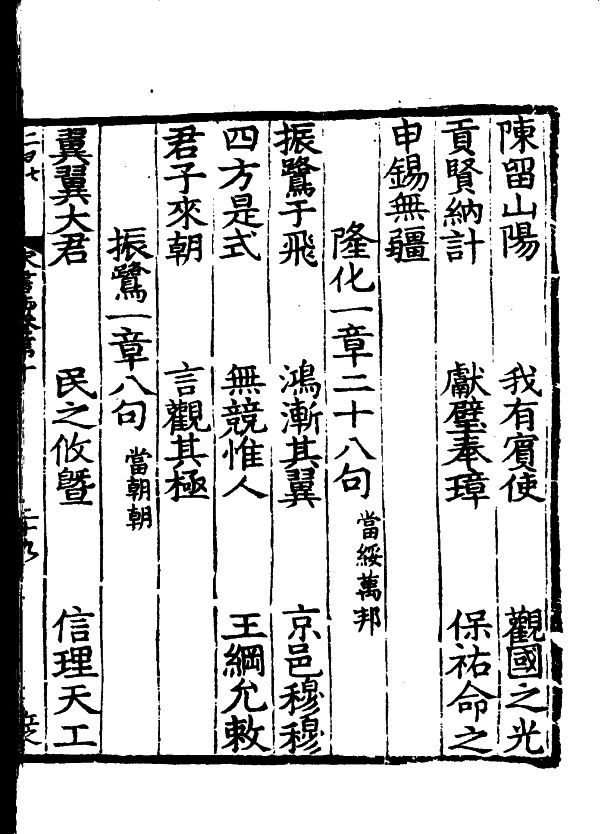 陳留山陽　我有賓使　觀國之光
貢賢納計　獻璧奉璋　保祐命之
申錫無疆
隆化一章二十八句　當綏萬邦
振鷺于飛　鴻漸其翼　京邑穆穆
四方是式　無競惟人　王綱允敕
君子來朝　言觀其極
振鷺一章八句　當朝朝
翼翼大君　民之攸曁　信理天工